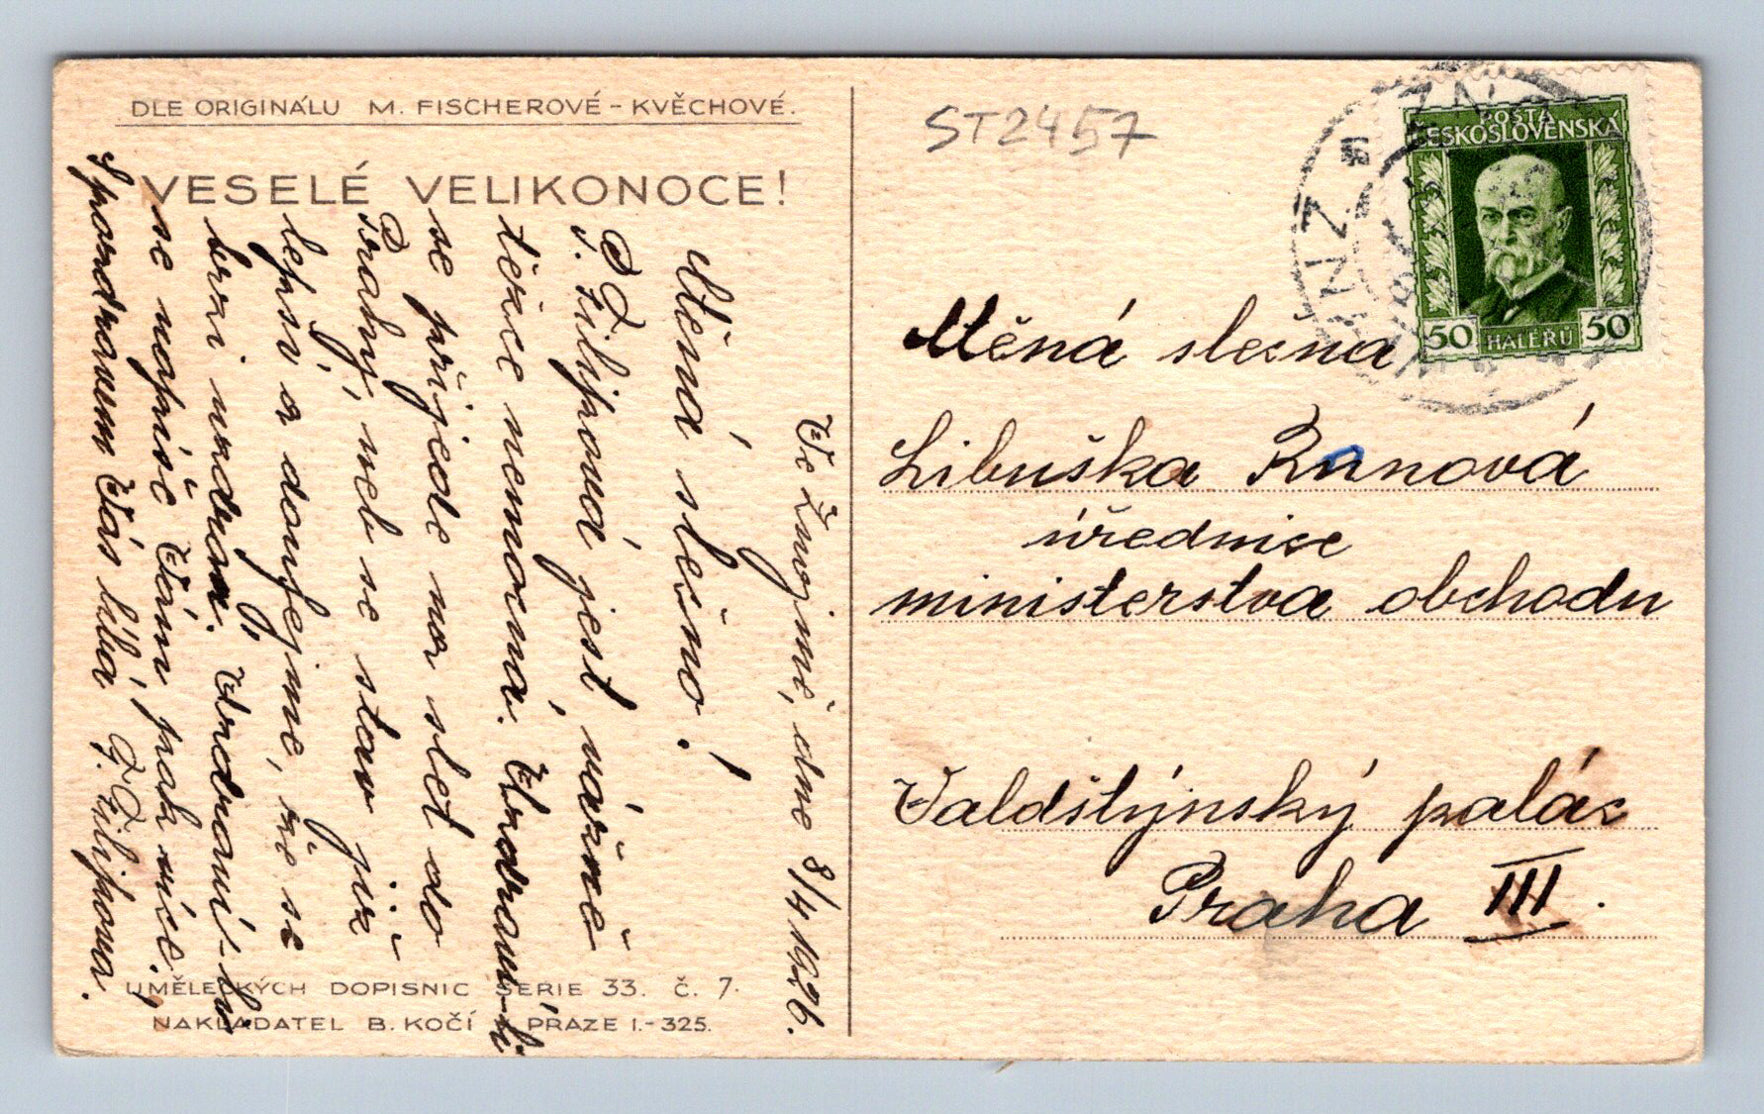 DLE ORIGINÁLU M. FISCHEROVÉ-KVĚCHOVÉ.
VESELÉ VELIKONOCE!
Ve Znojmě, dne 8/4 1926.
Ctěná slečno!
P. F. Filipová jest vážně
těžce nemocná. Uzdraví-li
se přijede na slet do
Prahy, neb se stav již
lepší a doufejme, že se
brzi uzdraví. Uzdraví-li
se napíše Vám pak více.
Spozdravem Vás líbá F. Filipova.
UMĚLECKÝCH DOPISNIC SERIE 33. Č. 7.
NAKLADATEL B. KOČÍ PRAZE I.-325.
ST2457
POŠTA
ČESKOSLOVENSKÁ
50 HALÉŘŮ 50
Ctěná slečna
Libuška Rnnová
úřednice
ministerstva obchodu
Valdštýnský palác
Praha III.